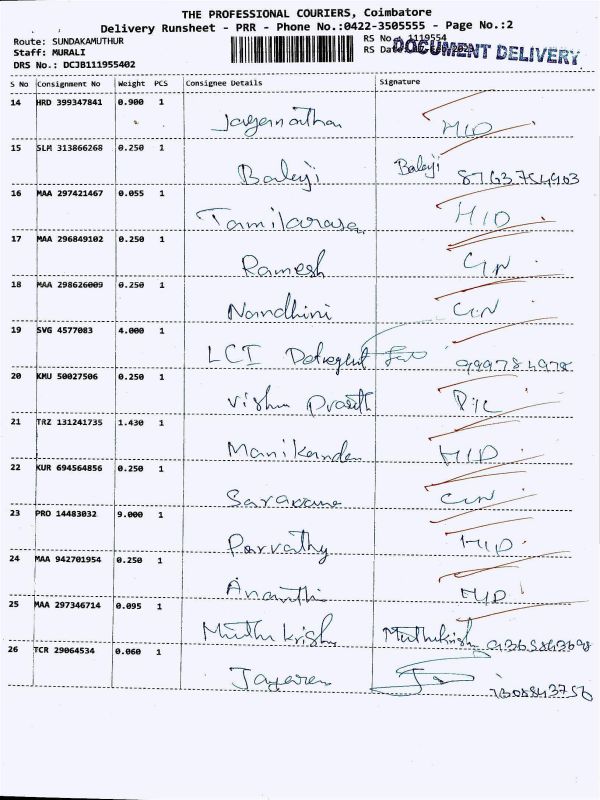 THE PROFESSIONAL COURIERS, Coimbatore
Delivery Runsheet - PRR - Phone No.:0422-3505555 - Page No.:2
Route: SUNDAKAMUTHUR RS No.: 1119554
Staff: MURALI RS Date DOCUMENT DELIVERY
DRS No.: DCJB111955402
S No Consignment No Weight PCS Consignee Details Signature
14 HRD 399347841 0.900 1 Jayamathan HID
15 SLM 313866268 0.250 1 Balaji Balaji
16 MAA 297421467 0.055 1 Tamilarasa HID
17 MAA 296849102 0.250 1 Ramesh GN
18 MAA 298626009 0.250 1 Nandhini GN
19 SVG 4577083 4.000 1 LCI Detergent
20 KMU 50027506 0.250 1 Vishnu Prasath
21 TRZ 131241735 1.430 1 Manikandan HID
22 KUR 694564856 0.250 1 Saravana GN
23 PRO 14483032 9.000 1 Parvathy HID
24 MAA 942701954 0.250 1 Ananthi HID
25 MAA 297346714 0.095 1 Muthu Krish Muthukrish
26 TCR 29064534 0.060 1 Jayaram